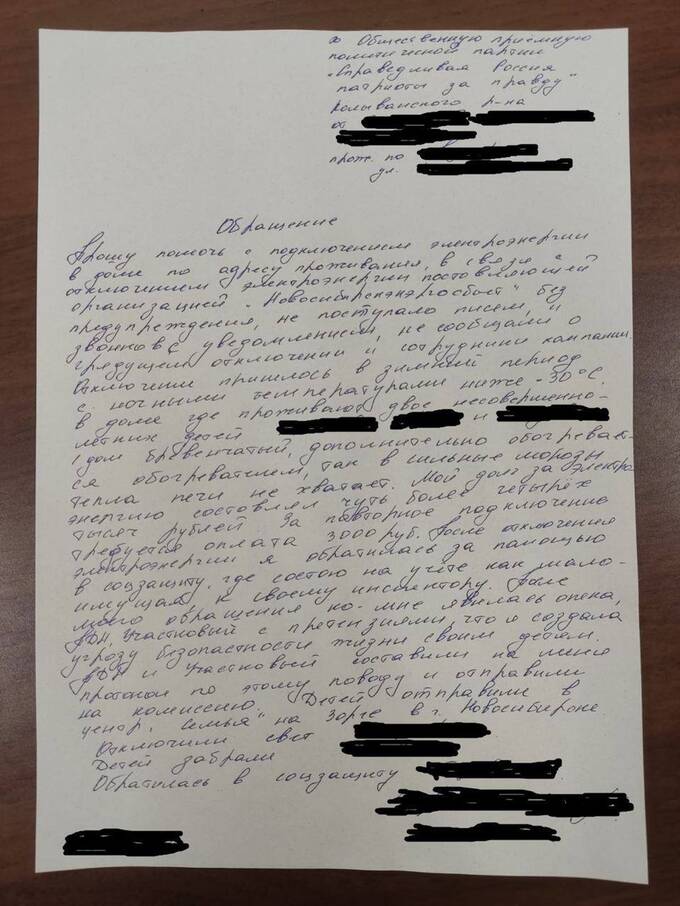 в Общественную приёмную
политической партии
"Справедливая Россия
патриоты за правду"
Колыванского р-на
от
прож. по
ул.
Обращение
Прошу помочь с подключением электроэнергии
в доме по адресу проживания, в связи с
отключением электроэнергии поставляющей
организацией "Новосибирскэнергосбыт" без
предупреждения, не поступало писем, и
звонков с уведомлением, не сообщали о
грядущем отключении и сотрудники кампании.
Отключение пришлось в зимний период
с ночными температурами ниже -30°С.
в доме где проживают двое несовершенно-
летних детей и
(дом бревенчатый, дополнительно обогревает-
ся обогревателем, так в сильные морозы
тепла печи не хватает. Мой долг за электро
энергию составлял чуть более четырёх
тысяч рублей. За повторное подключение
требуется оплата 3000 руб. После отключения
электроэнергии я обратилась за помощью
в соцзащиту, где состою на учёте как мало-
имущая к своему инспектору. После
моего обращения ко-мне явилась опека,
ПДН, Участковый с претензиями, что я создала
угрозу безопасности жизни своим детям.
ПДН и Участковый составили на меня
протокол по этому поводу и отправили
на комиссию. Детей отправили в
центр "Семья" на Зорге в г. Новосибирске
Отключили свет
Детей забрали
Обратилась в соцзащиту